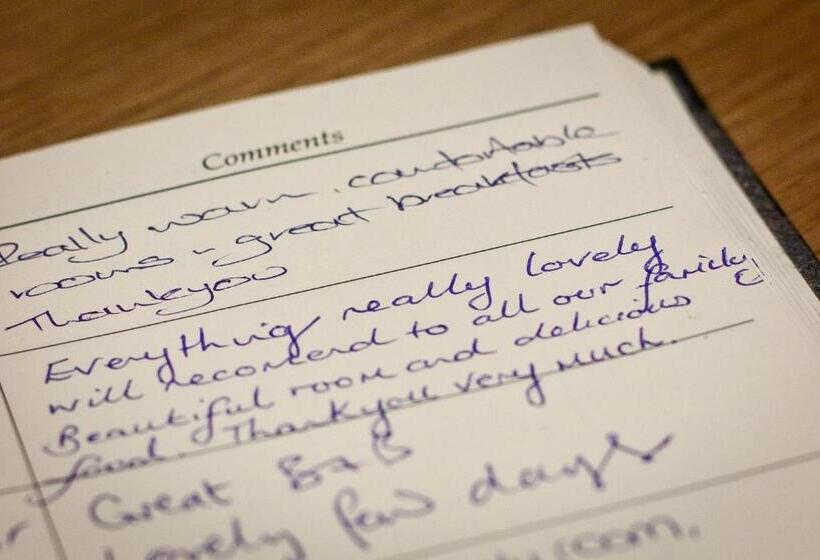 Comments
Really warm, comfortable
rooms - great breakfasts
Thankyou
Everything really lovely
will recomend to all our family
Beautiful room and delicious
food. Thankyou very much.
Great B&B
Lovely few days
room.